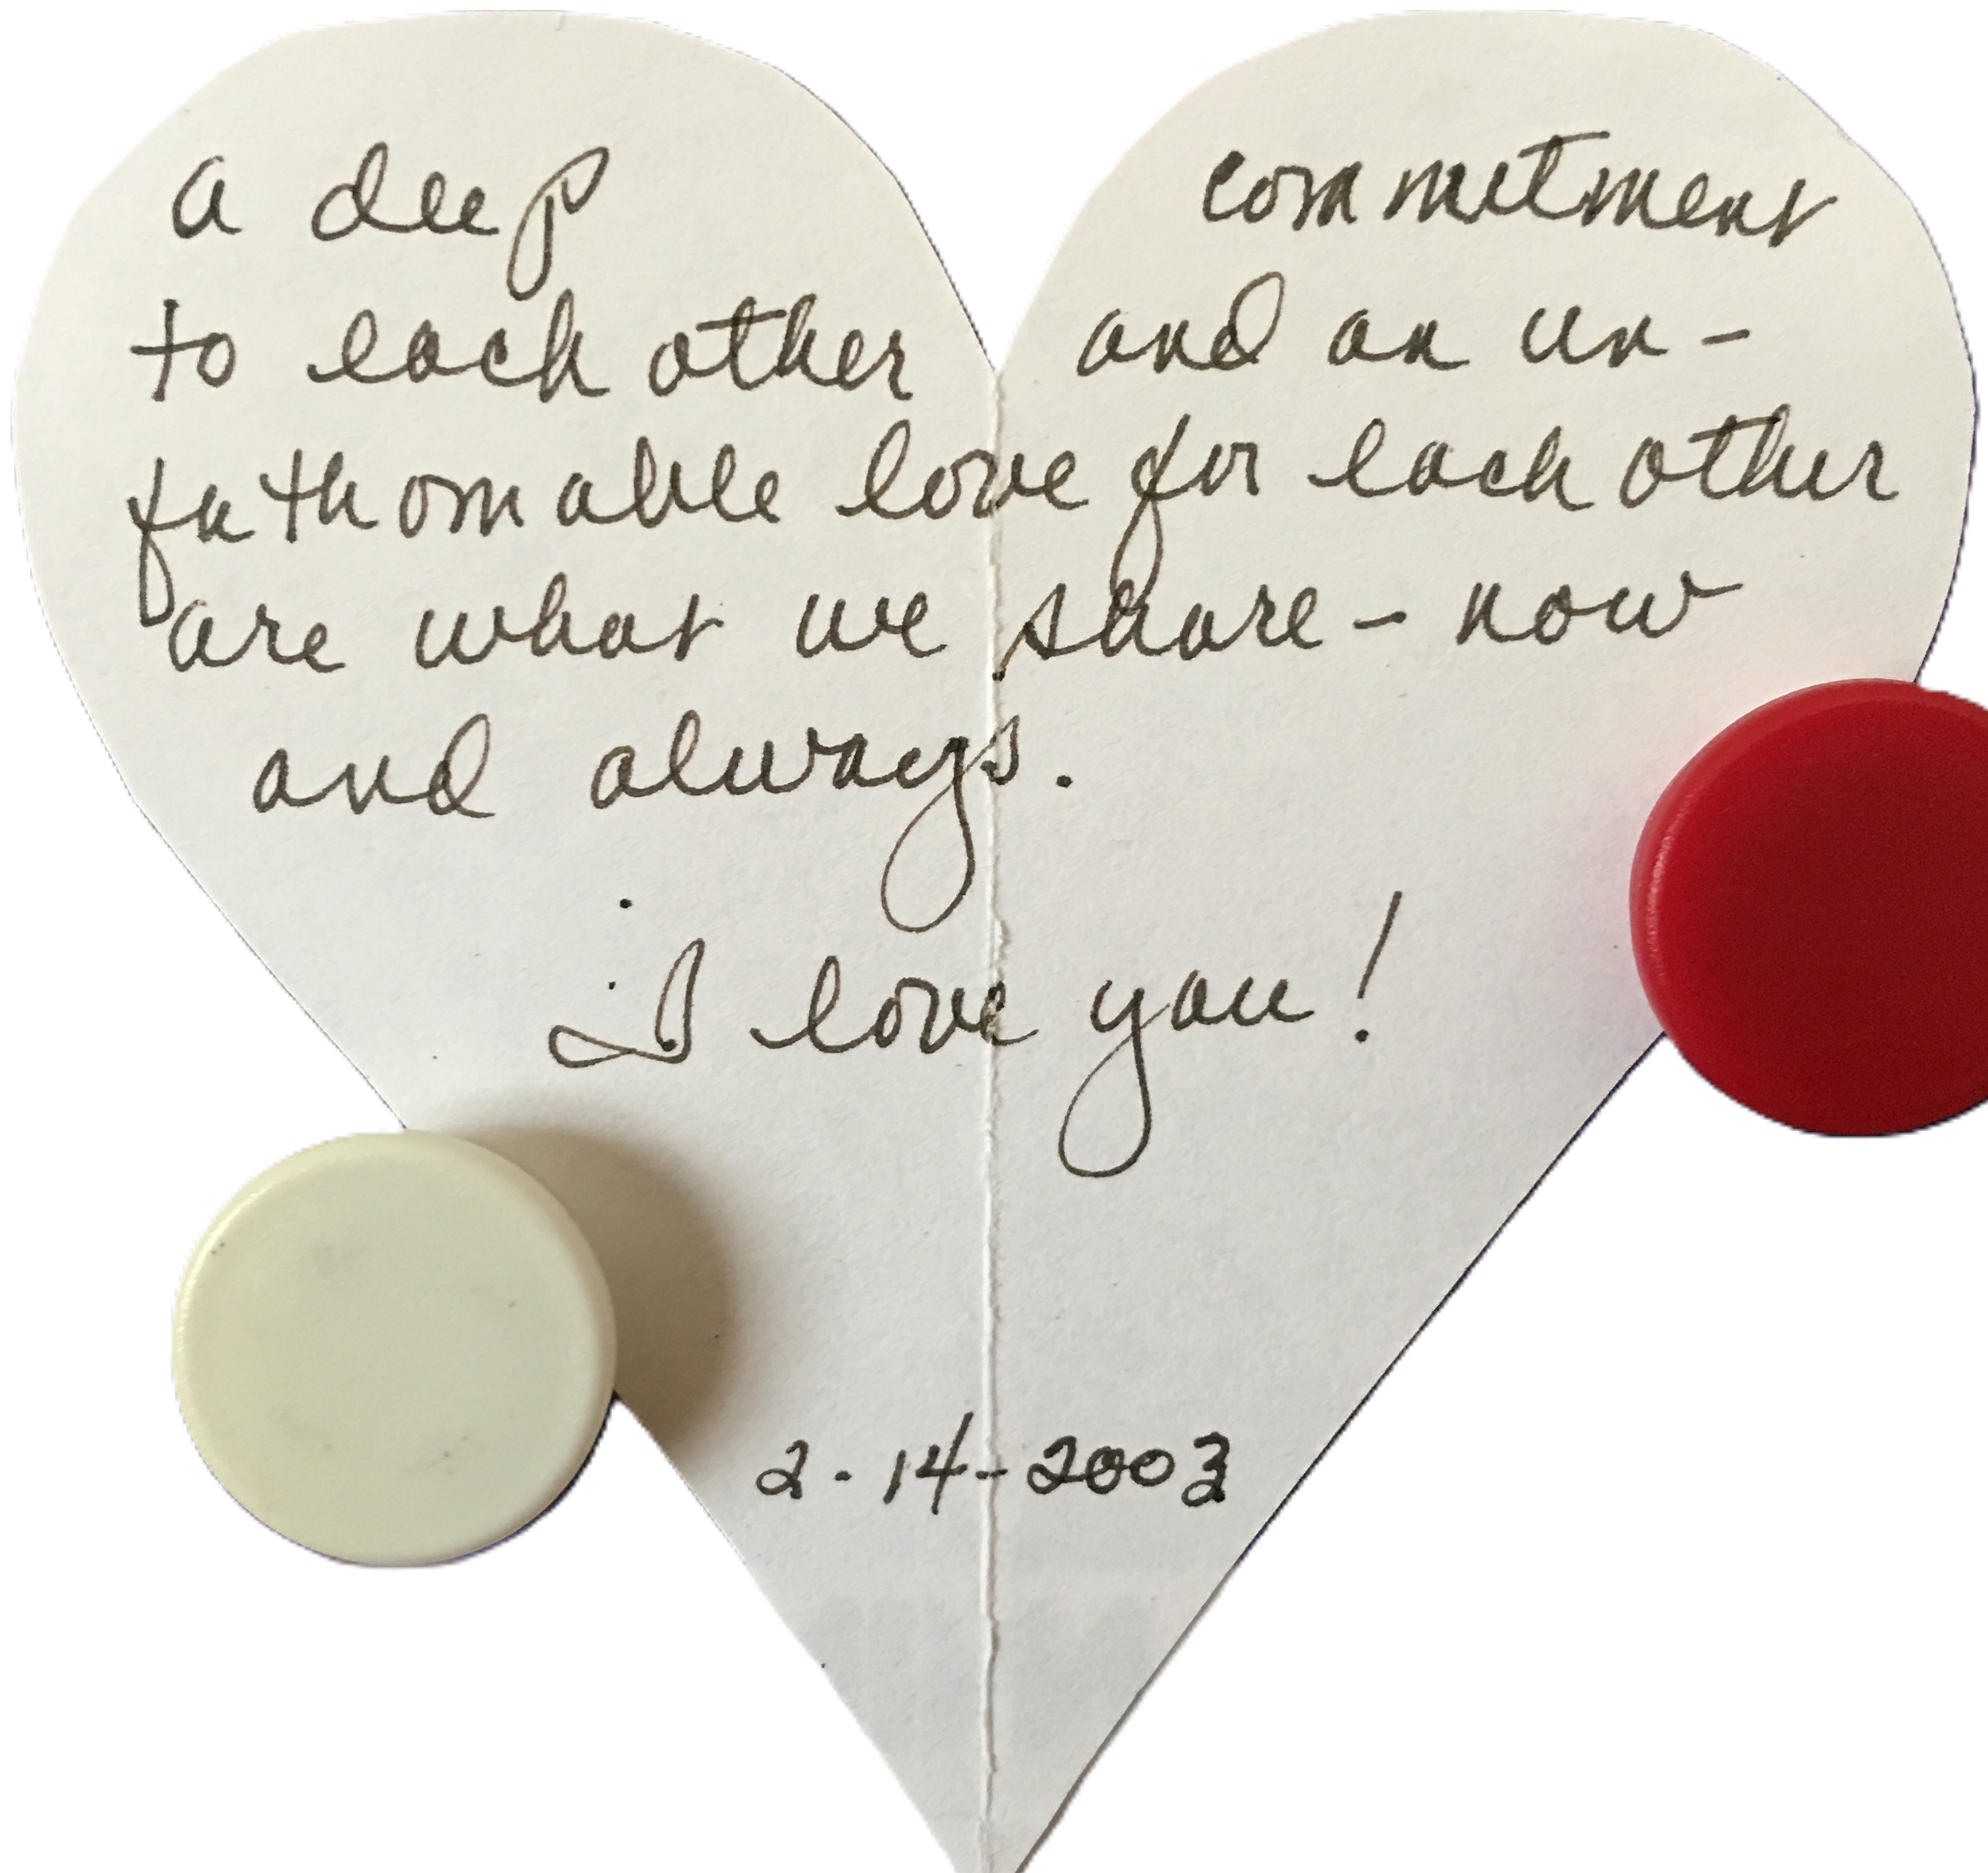 a deep commitment
to each other and an un-
fathomable love for each other
are what we share – now
and always.
I love you!
2-14-2003